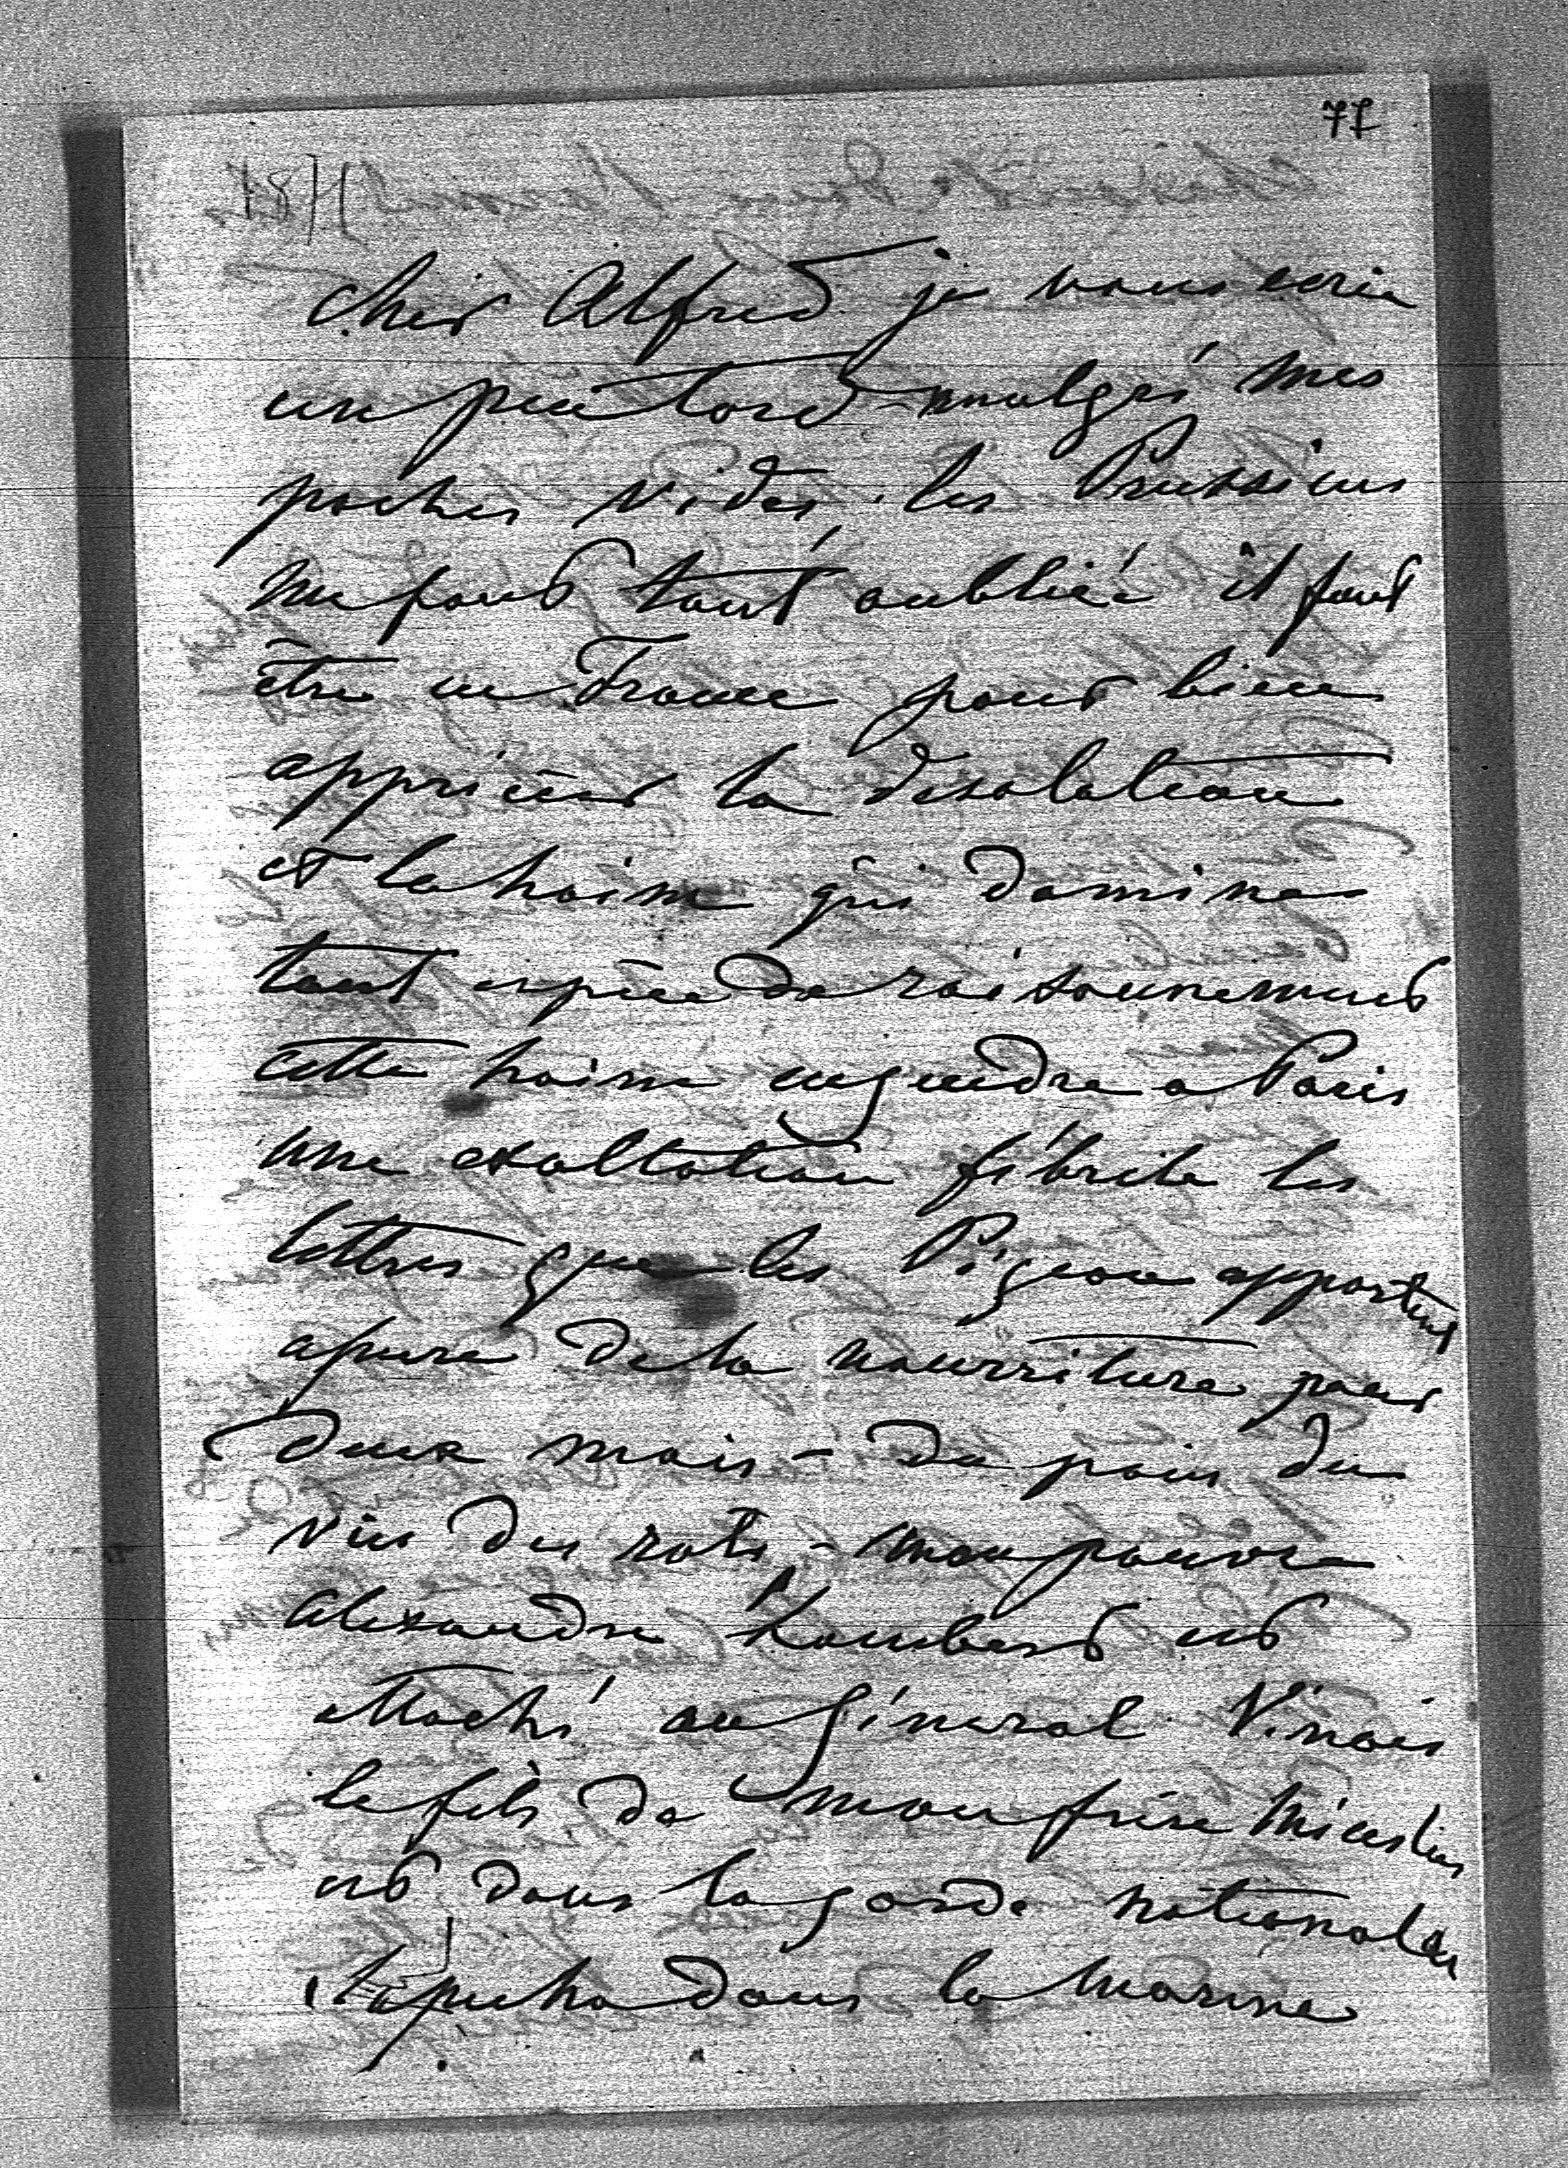 77
cher Alfred je vous ecrie
un peu tard - malgré mes
poches vides, les Prussiens
me font tout oublié il faut
être en France pour bien
apprécier la désolation
et la haine qui domine
tout espèce de raisonnement
cette haine engendre a Paris
une exaltation fébrile les
lettres que les Pigeon apportent
de la nourriture pour
deux mois - du pain du
vin des rats - mon pauvre
Alexandre est
attaché au Général Vinois
le fils de mon frère
est dans la garde nationale
dans la Marine